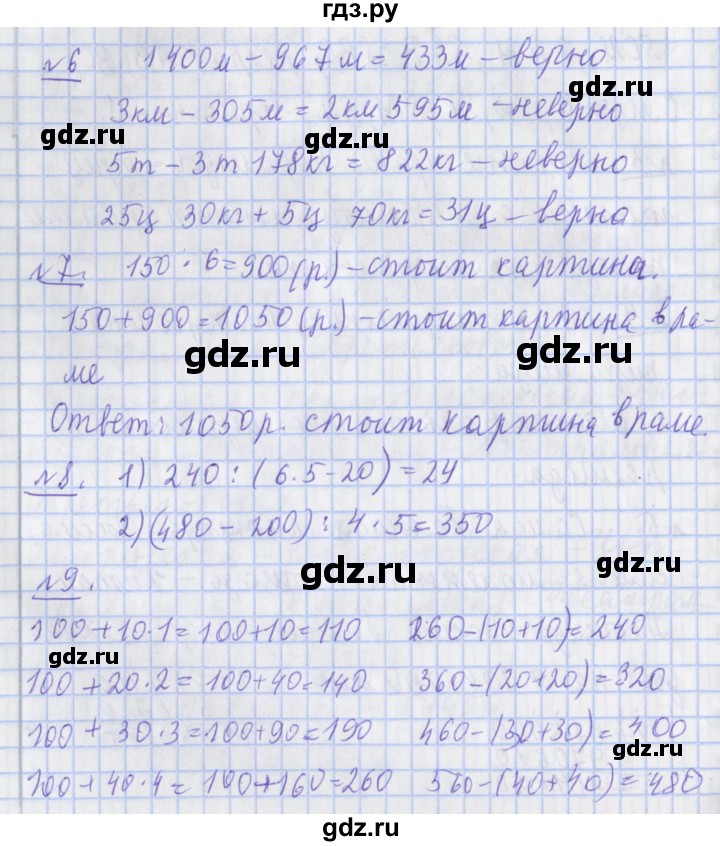 гдз.ру
№6 1400м - 967м = 433м - верно
gdz.ru
gdz.ru
3км - 305м = 2км 595м - неверно
5т - 3т 178кг = 822кг - неверно
gdz.ru
25ц 30кг + 5ц 70кг = 31ц - верно
№7. 150 · 6 = 900(р.) - стоит картина.
gdz.ru
150 + 900 = 1050(р.) - стоит картина в ра-
gdz.ru
gdz.ru
ме
Ответ: 1050р. стоит картина в раме.
gdz.ru
№8. 1) 240 : (6·5-20) = 24
2) (480 - 200) : 4 · 5 = 350
gdz.ru
gdz.ru
№9.
100 + 10·1 = 100+10 = 110 260-(10+10) = 240
gdz.ru
100 + 20·2 = 100+40 = 140 360-(20+20) = 320
100 + 30·3 = 100+90 = 190 460-(30+30) = 400
gdz.ru
100 + 40·4 = 100+160 = 260 560-(40+40) = 480
gdz.ru
gdz.ru